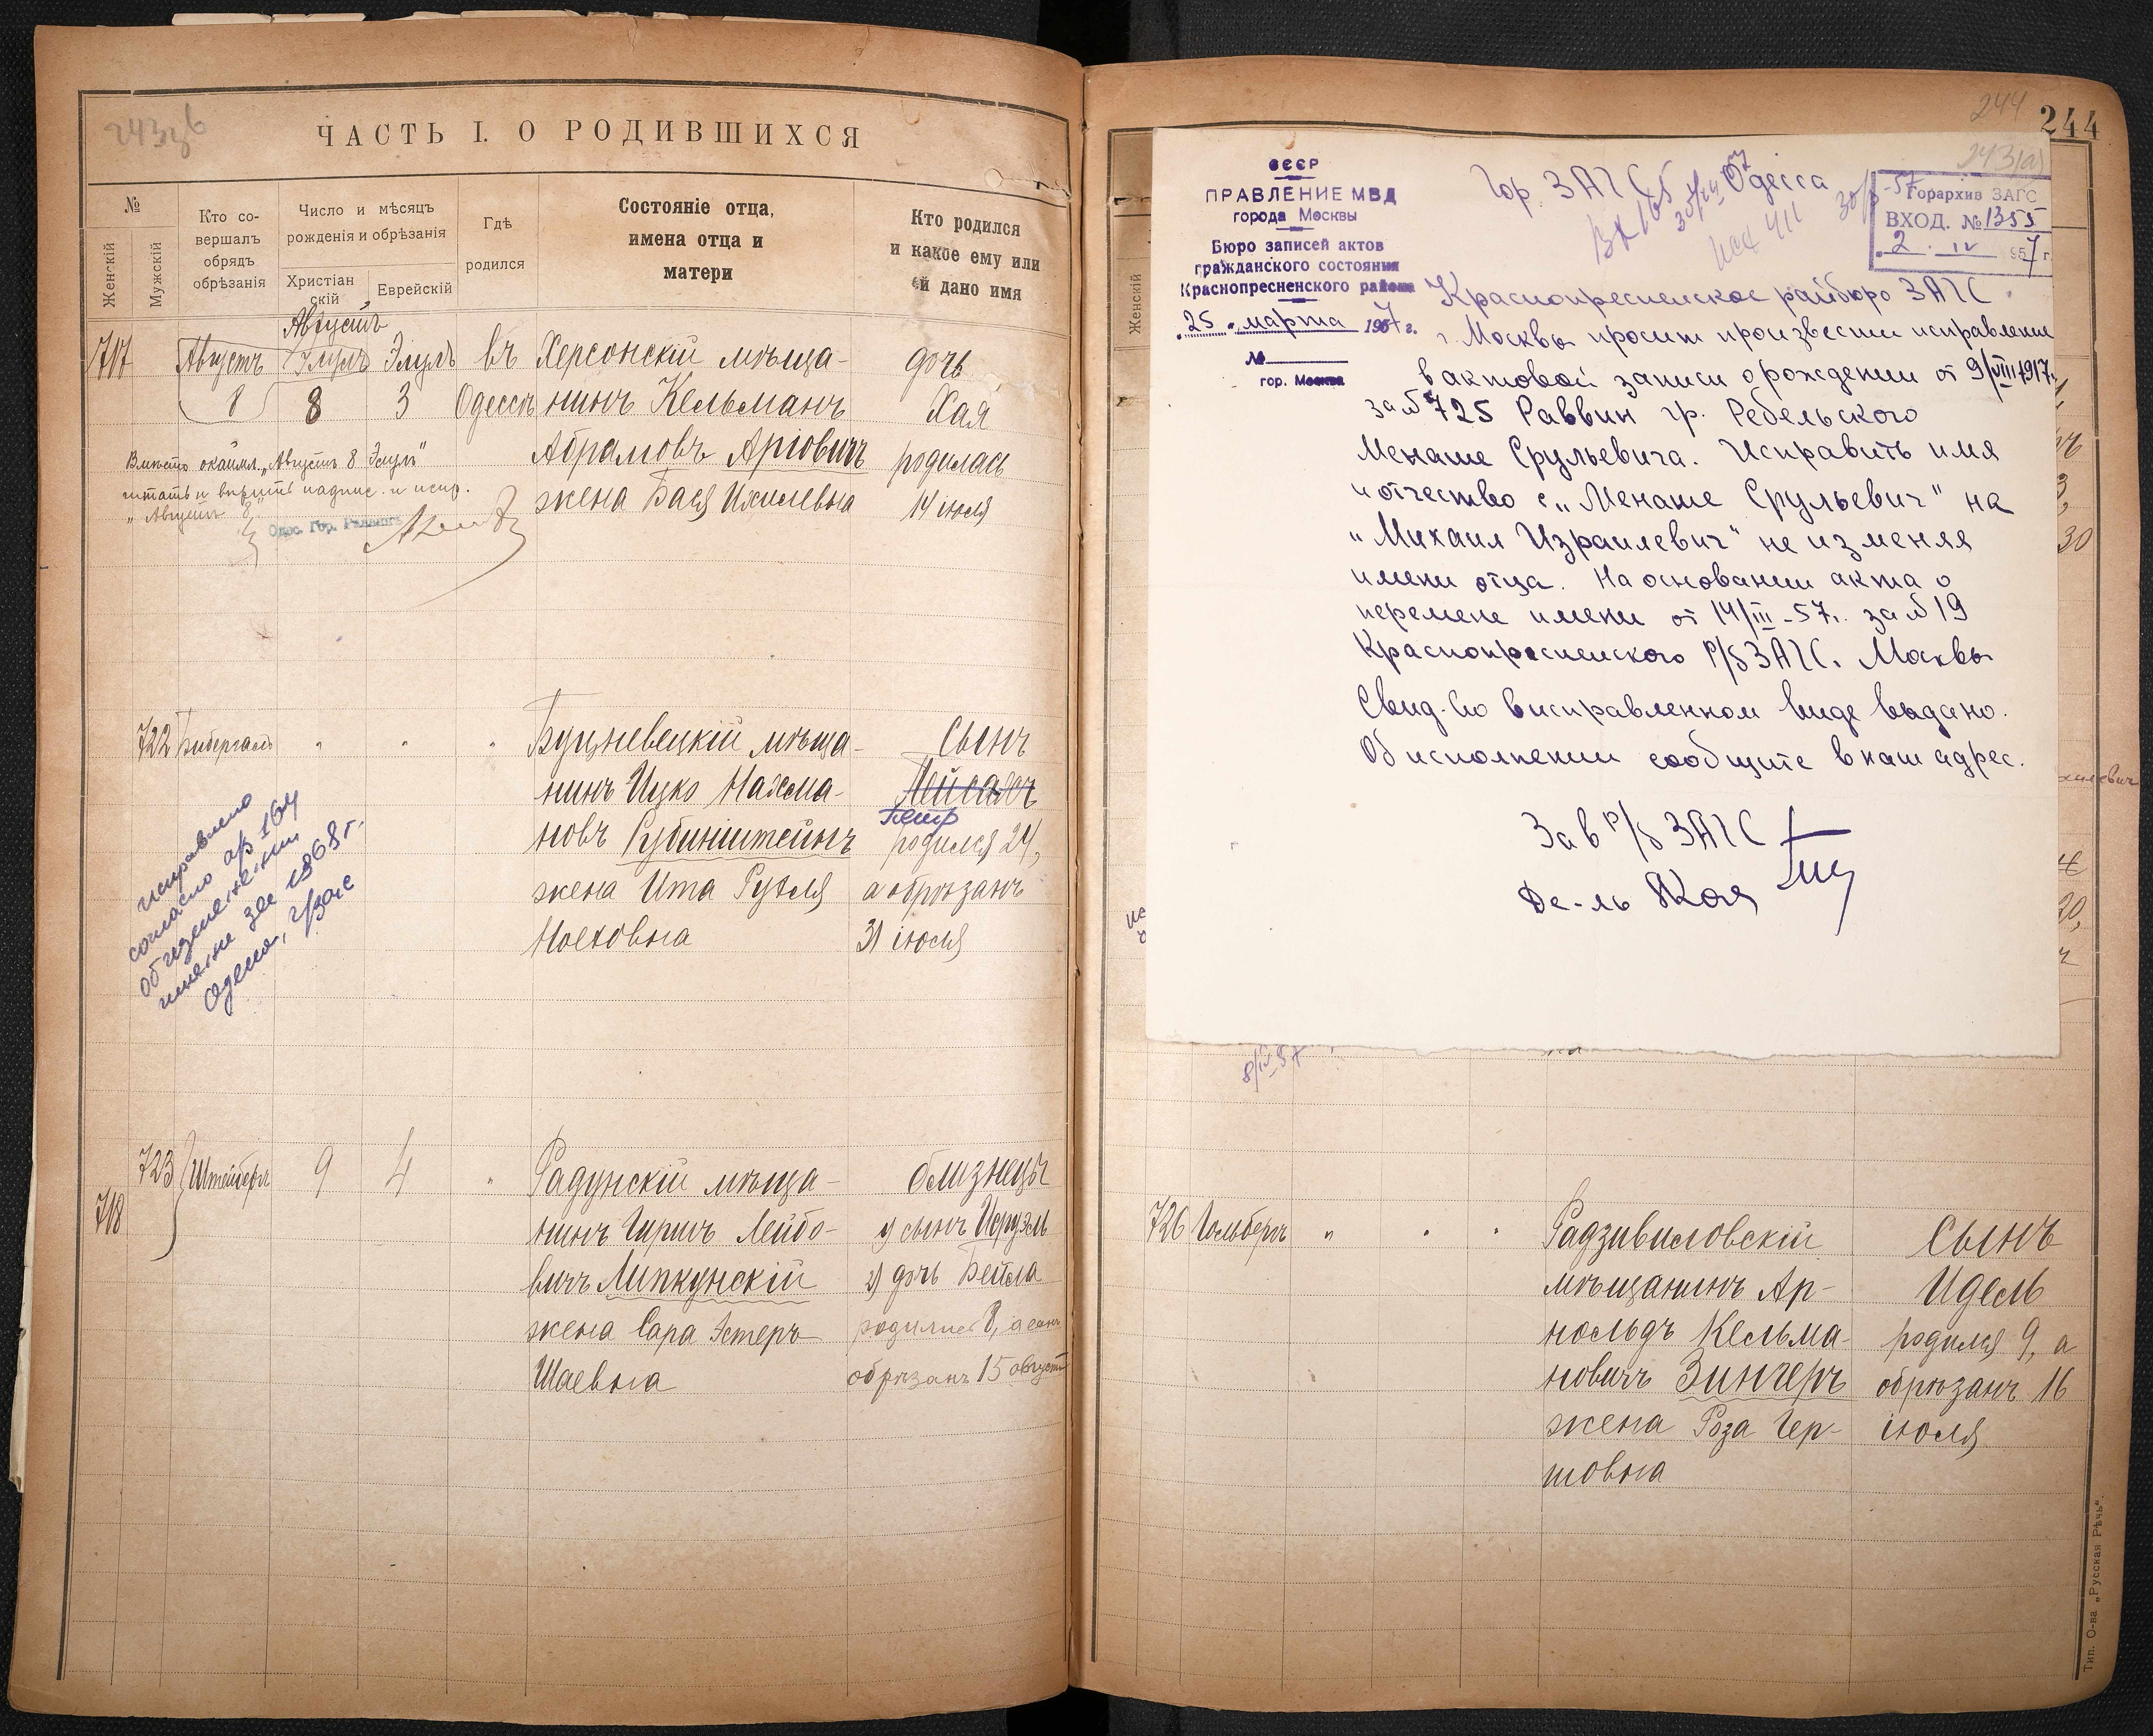 ЧАСТЬ I. О РОДИВШИХСЯ
№
Женскій
Мужскій
Кто со-
вершалъ
обрядъ
обрѣзанія
Число и мѣсяцъ
рожденія и обрѣзанія
Христіан
скій
Еврейскій
Гдѣ
родился
Состояніе отца,
имена отца и
матери
Кто родился
и какое ему или
ей дано имя
Августъ
717
Августъ
8
Элулъ
8
Элулъ
3
въ
Одессѣ
Херсонскій мѣща-
нинъ Кельманъ
Абрамовъ Аріовичъ
жена Бася Ихилевна
дочь
Хая
родилась
14 іюля
Вмѣсто окаймл. „Августъ 8 Элулъ"
читать и вѣрить надпис. и испр.
„Августъ 8"
Одес. Гор. Раввинъ
722
Бибергалъ
"
"
"
Буцневецкій мѣща-
нинъ Ицко Нахма-
новъ Рубинштейнъ
жена Ита Рухля
Ноеховна
Сынъ
Пейсахъ
Петр
родился 24,
а обрѣзанъ
31 іюля
исправлено
согласно а/з 164
об изменении
имени за 1968 г.
Одесса, г/загс
723
718
Штейнберг
9
4
"
Радунскій мѣща-
нинъ Гиршъ Лейбо-
вичъ Липкунскій
жена Сара Эстеръ
Шаевна
близнецы
1) сынъ Исруэль
2) дочь Бейла
родились 8, а сынъ
обрѣзанъ 15 августа
244
244
243(а)
СССР
ПРАВЛЕНИЕ МВД
города Москвы
Бюро записей актов
гражданского состояния
Краснопресненского района
25 марта 1957 г.
№
гор. Москва
Гор. ЗАГС Одесса
Вх 165
исх 411
Горархив ЗАГС
ВХОД. № 1355
2. IV 1957 г.
Краснопресненское райбюро ЗАГС
г. Москвы просит произвести исправление
в актовой записи о рождении от 9/VIII 1917 г.
за № 725 Раввин гр. Ребельского
Менаше Срульевича. Исправить имя
и отчество с „Менаше Срульевич" на
„Михаил Израилевич" не изменяя
имени отца. На основании акта о
перемене имени от 14/III-57 г. за № 19
Краснопресненского Р/б ЗАГС. Москвы
Свид-во в исправленном виде выдано.
Об исполнении сообщите в наш адрес.
Зав Р/б ЗАГС
Де-ль
Женскій
30
20,
8/IV-57
726
Гольберг
"
"
"
Радзивиловскій
мѣщанинъ Ар-
нольдъ Кельма-
новичъ Зингеръ
жена Роза Гер-
шовна
Сынъ
Идель
родился 9, а
обрѣзанъ 16
іюля
Тип. О-ва „Русская Рѣчь".